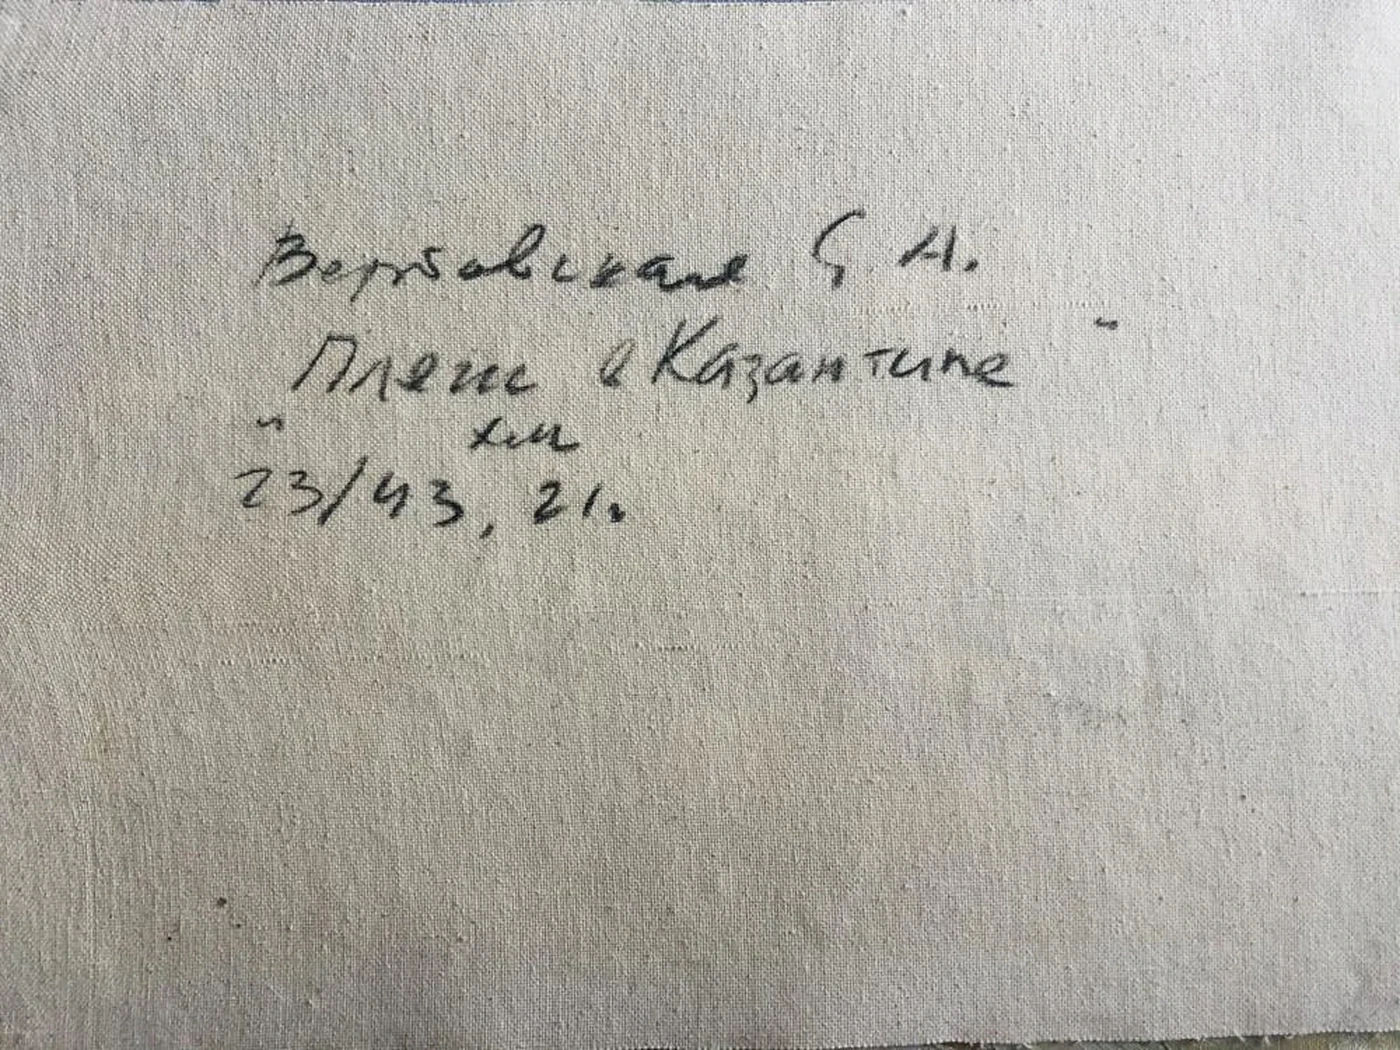 Вербовская Я А.
Пляж в Казантипе"
" хм
23/43, 21.